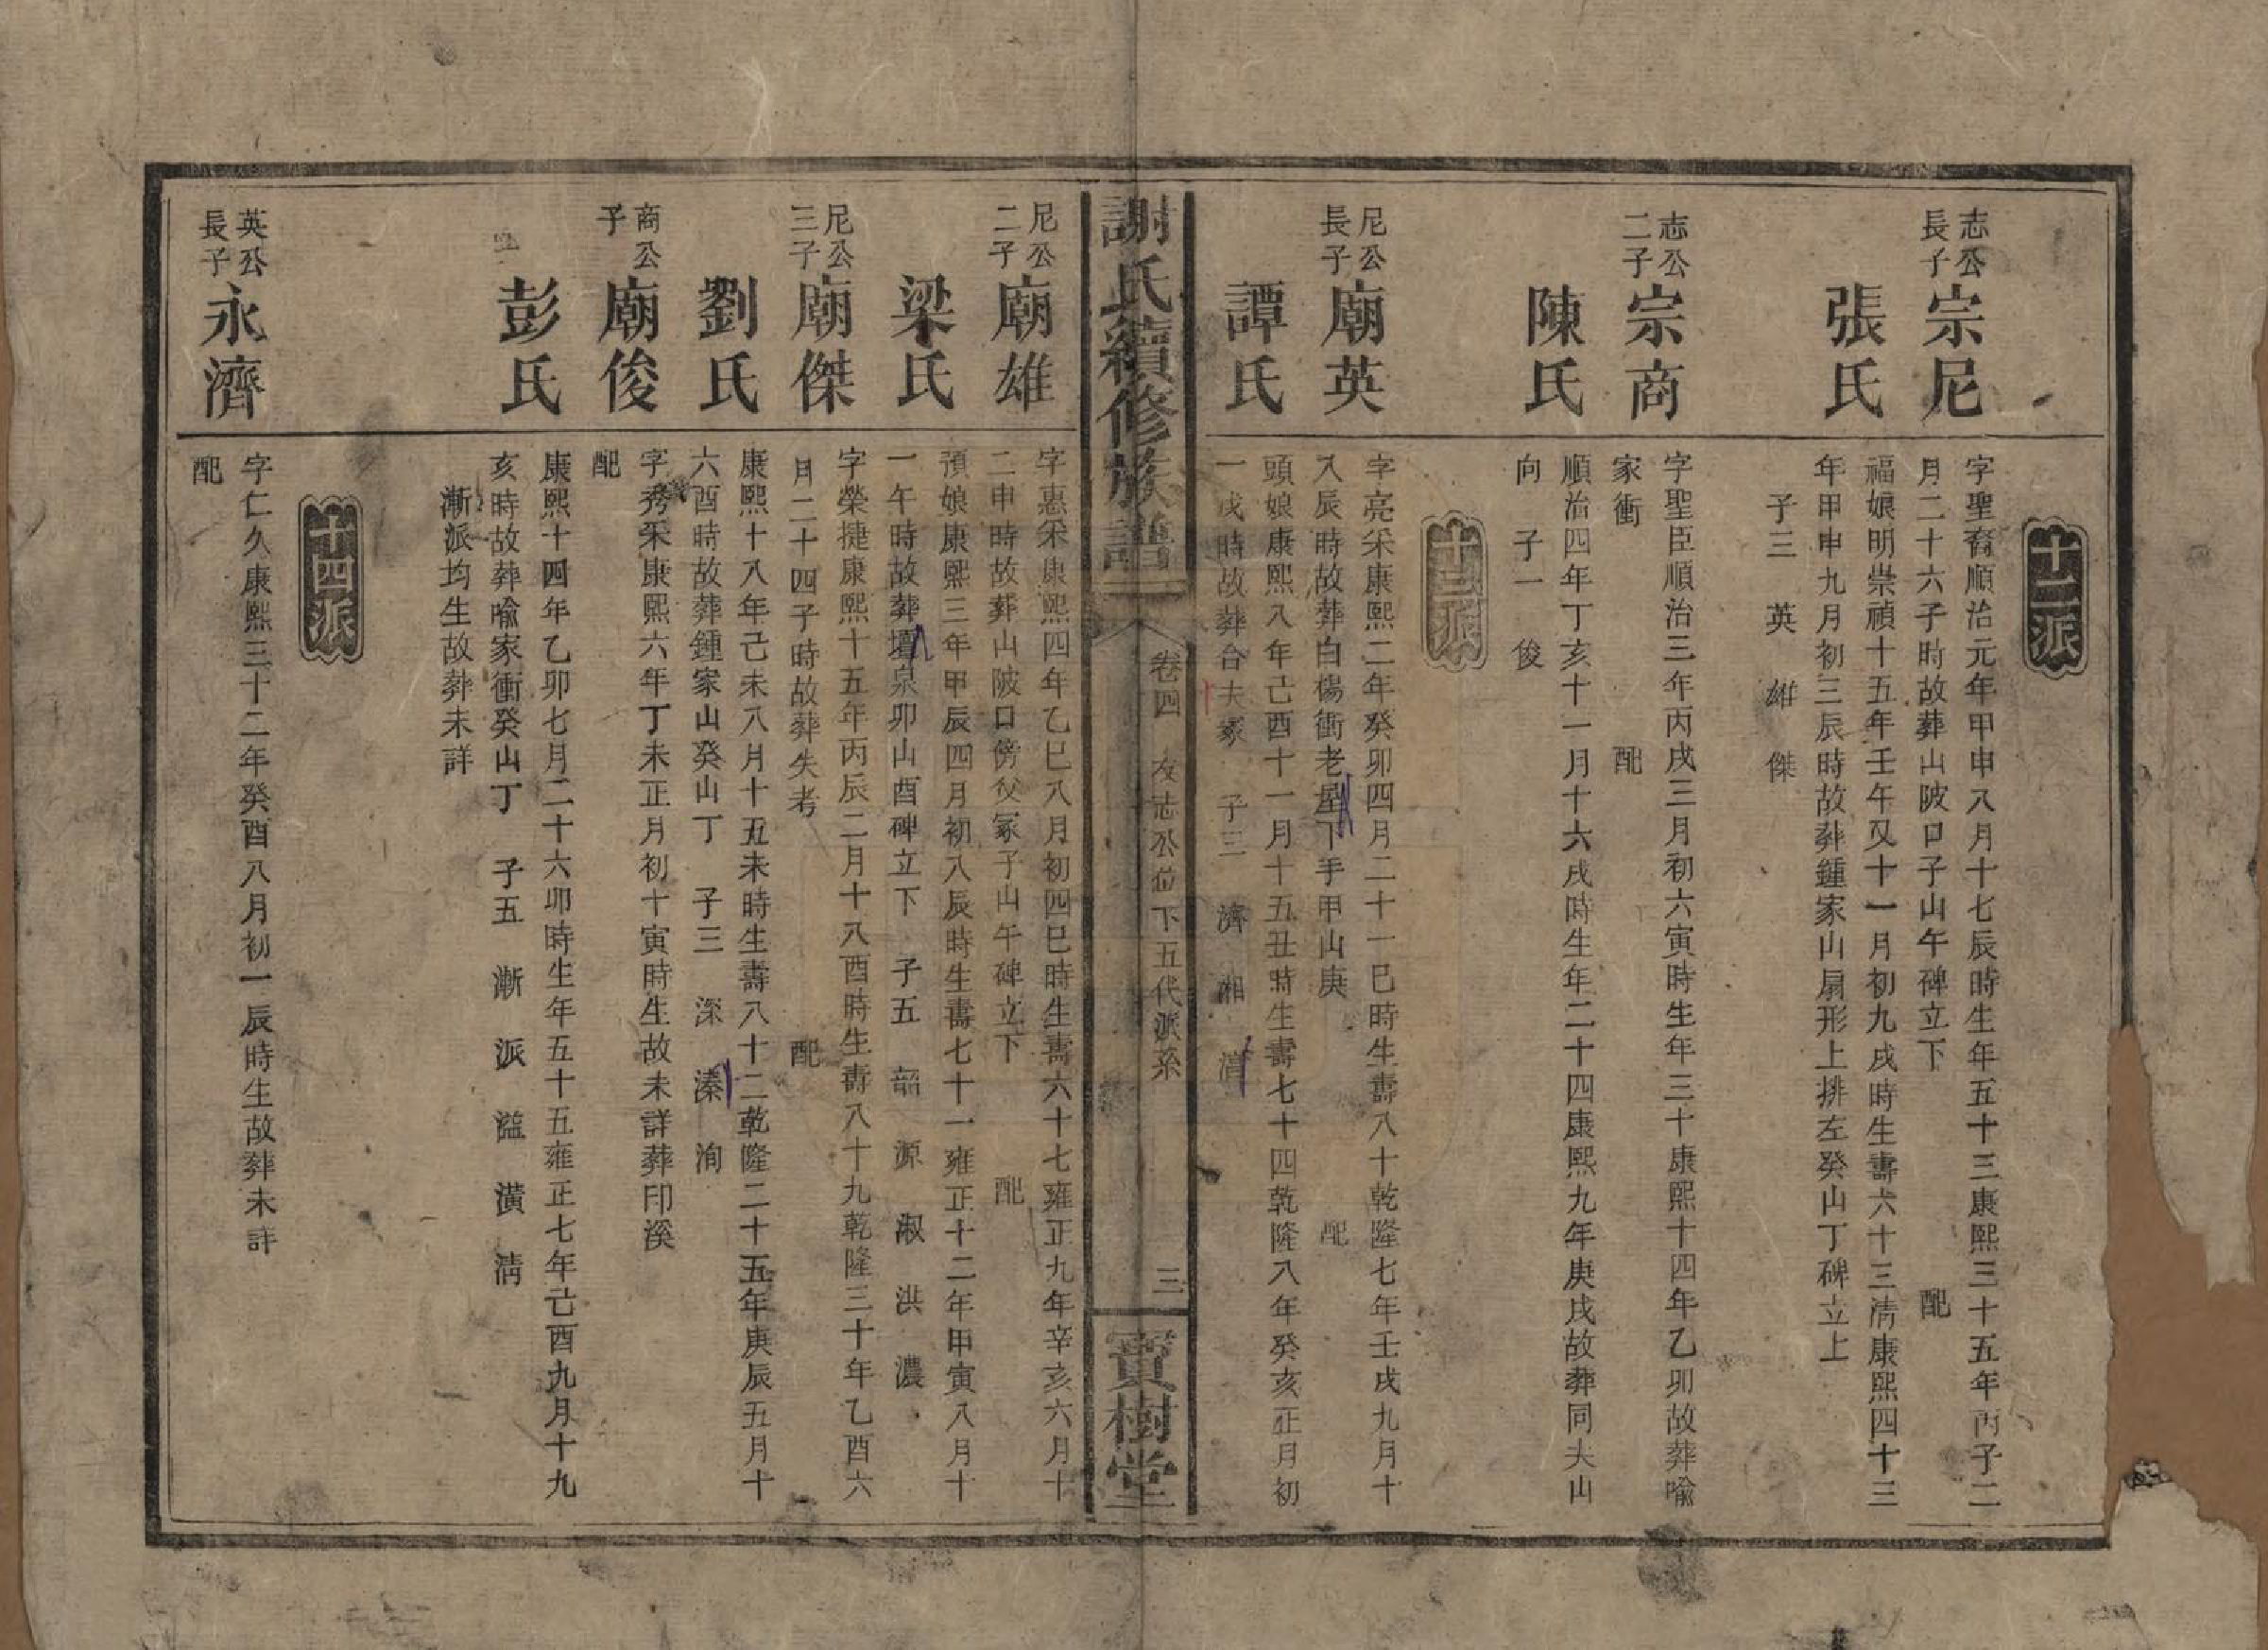 十二派
志公
長子
宗尼
字聖裔順治元年甲申八月十七辰時生年五十三康熙三十五年丙子二
月二十六子時故葬山陂口子山午碑立下 配
張氏
福娘明崇禎十五年壬午又十一月初九戌時生壽六十三清康熙四十三
年甲申九月初三辰時故葬鍾家山扇形上排左癸山丁碑立上
子三 英 雄 傑
志公
二子
宗商
字聖臣順治三年丙戌三月初六寅時生年三十康熙十四年乙卯故葬喻
家衝 配
陳氏
順治四年丁亥十一月十六戌時生年二十四康熙九年庚戌故葬同夫山
向 子一 俊
十三派
尼公
長子
廟英
字亮采康熙二年癸卯四月二十一巳時生壽八十乾隆七年壬戌九月十
八辰時故葬白楊衝老屋下手甲山庚 配
譚氏
頭娘康熙八年己酉十一月十五丑時生壽七十四乾隆八年癸亥正月初
一戌時故葬合夫冢 子三 濟 湘 清
謝氏續修族譜
卷四 友志公位下五代派系
三
寶樹堂
尼公
二子
廟雄
字惠采康熙四年乙巳八月初四巳時生壽六十七雍正九年辛亥六月十
二申時故葬山陂口傍父冢子山午碑立下 配
梁氏
預娘康熙三年甲辰四月初八辰時生壽七十一雍正十二年甲寅八月十
一午時故葬壇泉卯山酉碑立下 子五 韶 源 淑 洪 濃
尼公
三子
廟傑
字榮捷康熙十五年丙辰二月十八酉時生壽八十九乾隆三十年乙酉六
月二十四子時故葬失考 配
劉氏
康熙十八年己未八月十五未時生壽八十二乾隆二十五年庚辰五月十
六酉時故葬鍾家山癸山丁 子三 深 溱 洵
商公
子
廟俊
字秀采康熙六年丁未正月初十寅時生故未詳葬印溪
配
彭氏
康熙十四年乙卯七月二十六卯時生年五十五雍正七年己酉九月十九
亥時故葬喻家衝癸山丁 子五 漸 派 溢 潢 清
漸派均生故葬未詳
十四派
英公
長子
永濟
字仁久康熙三十二年癸酉八月初一辰時生故葬未詳
配